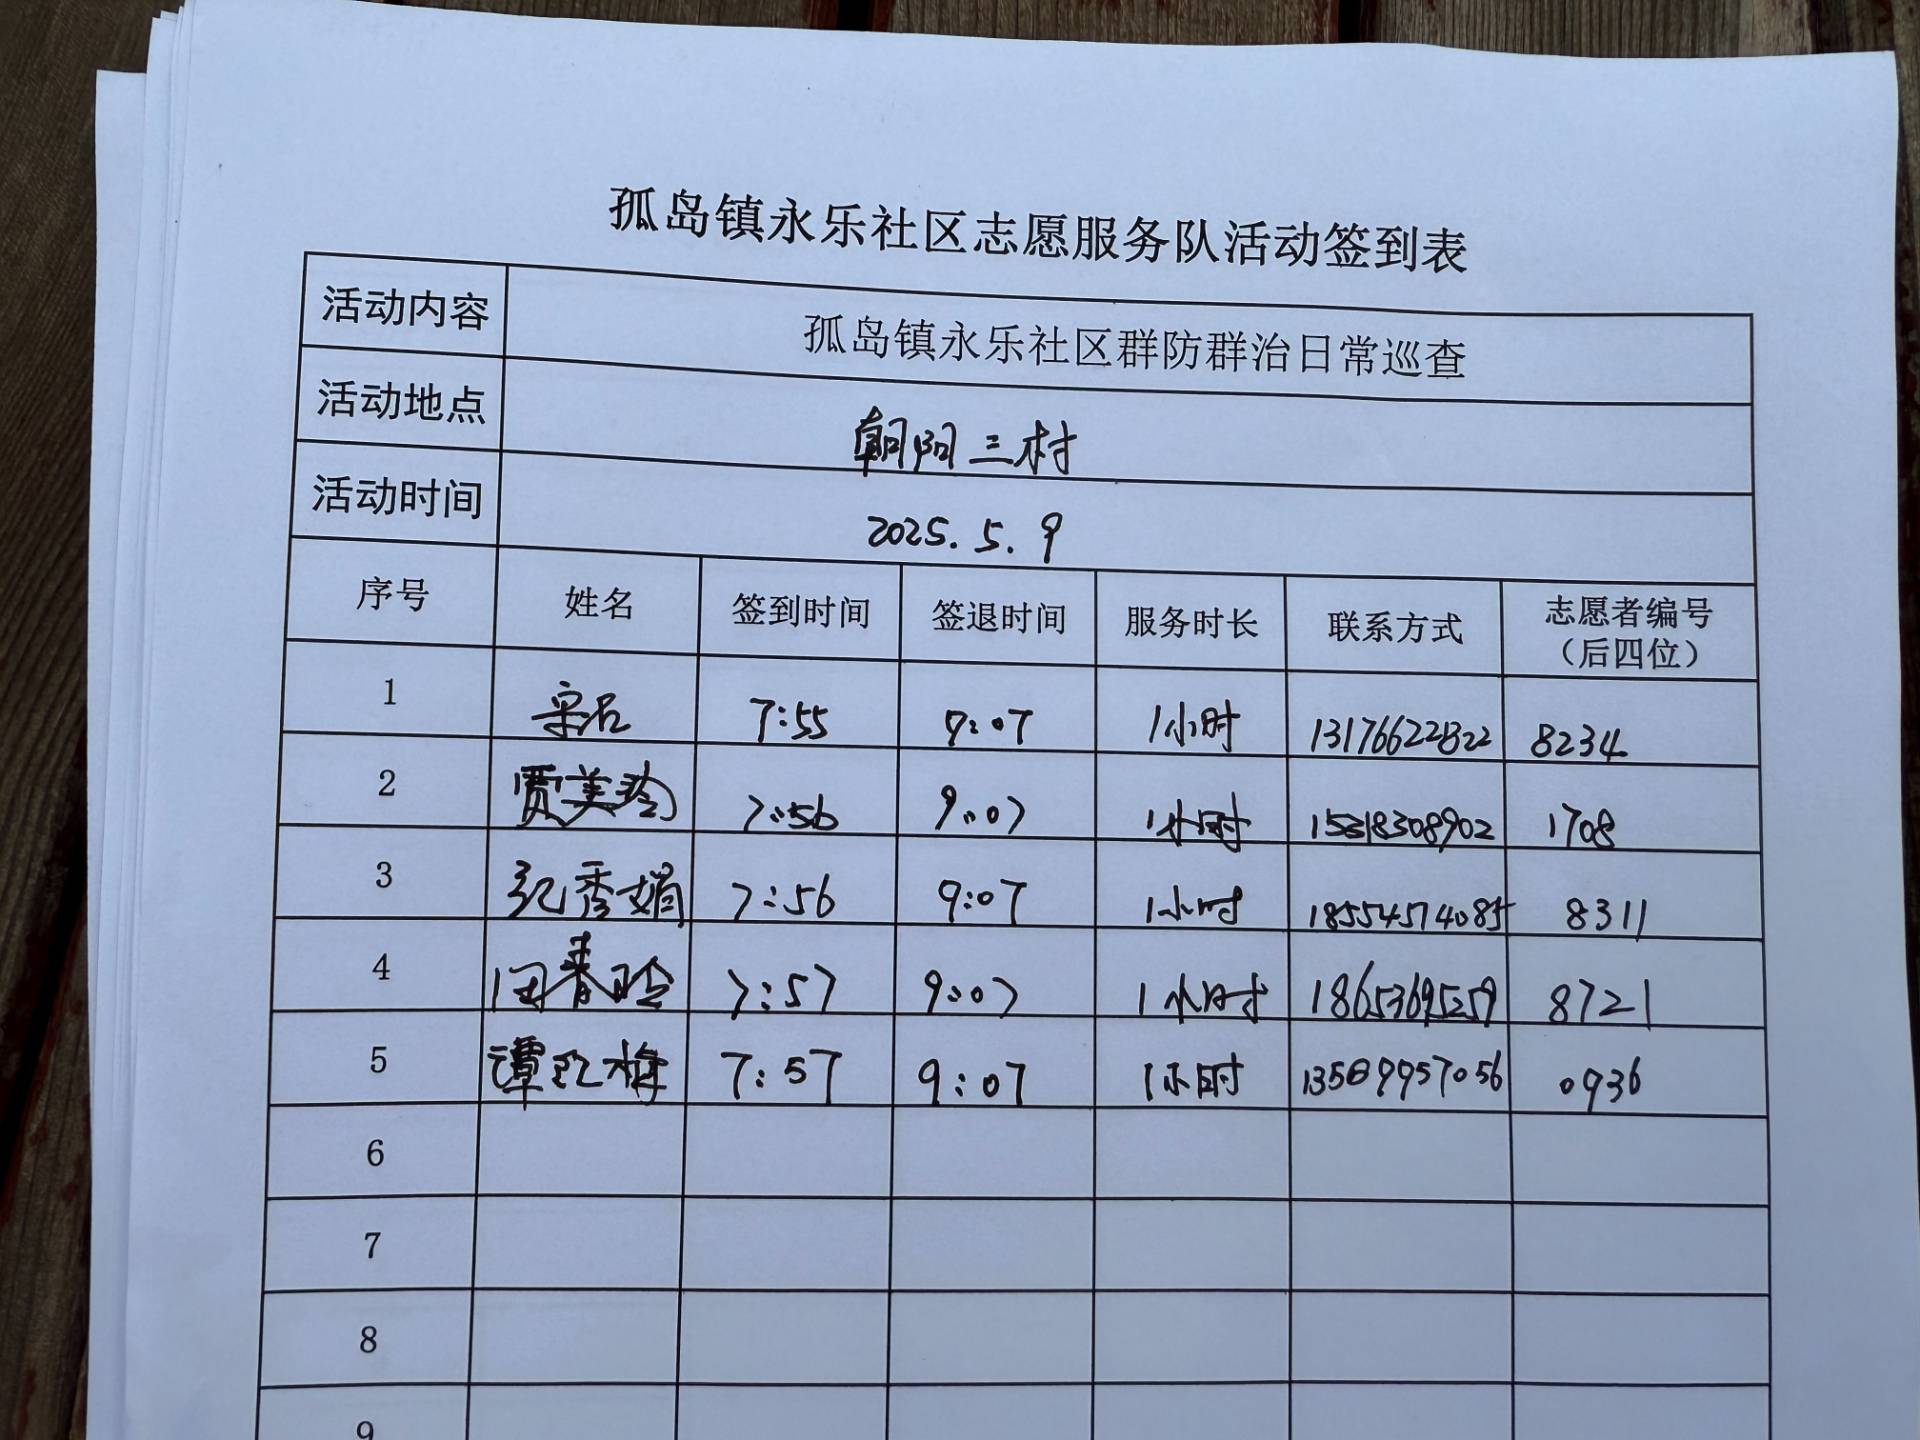 孤岛镇永乐社区志愿服务队活动签到表
活动内容 孤岛镇永乐社区群防群治日常巡查
活动地点 朝阳三村
活动时间 2025.5.9
序号 姓名 签到时间 签退时间 服务时长 联系方式 志愿者编号（后四位）
1 7:55 9:07 1小时 13176622822 8234
2 贾美玲 7:56 9:07 1小时 1708
3 纪秀娟 7:56 9:07 1小时 18554574085 8311
4 田春玲 7:57 9:07 1小时 18653695259 8721
5 谭红梅 7:57 9:07 1小时 0936
6
7
8
9